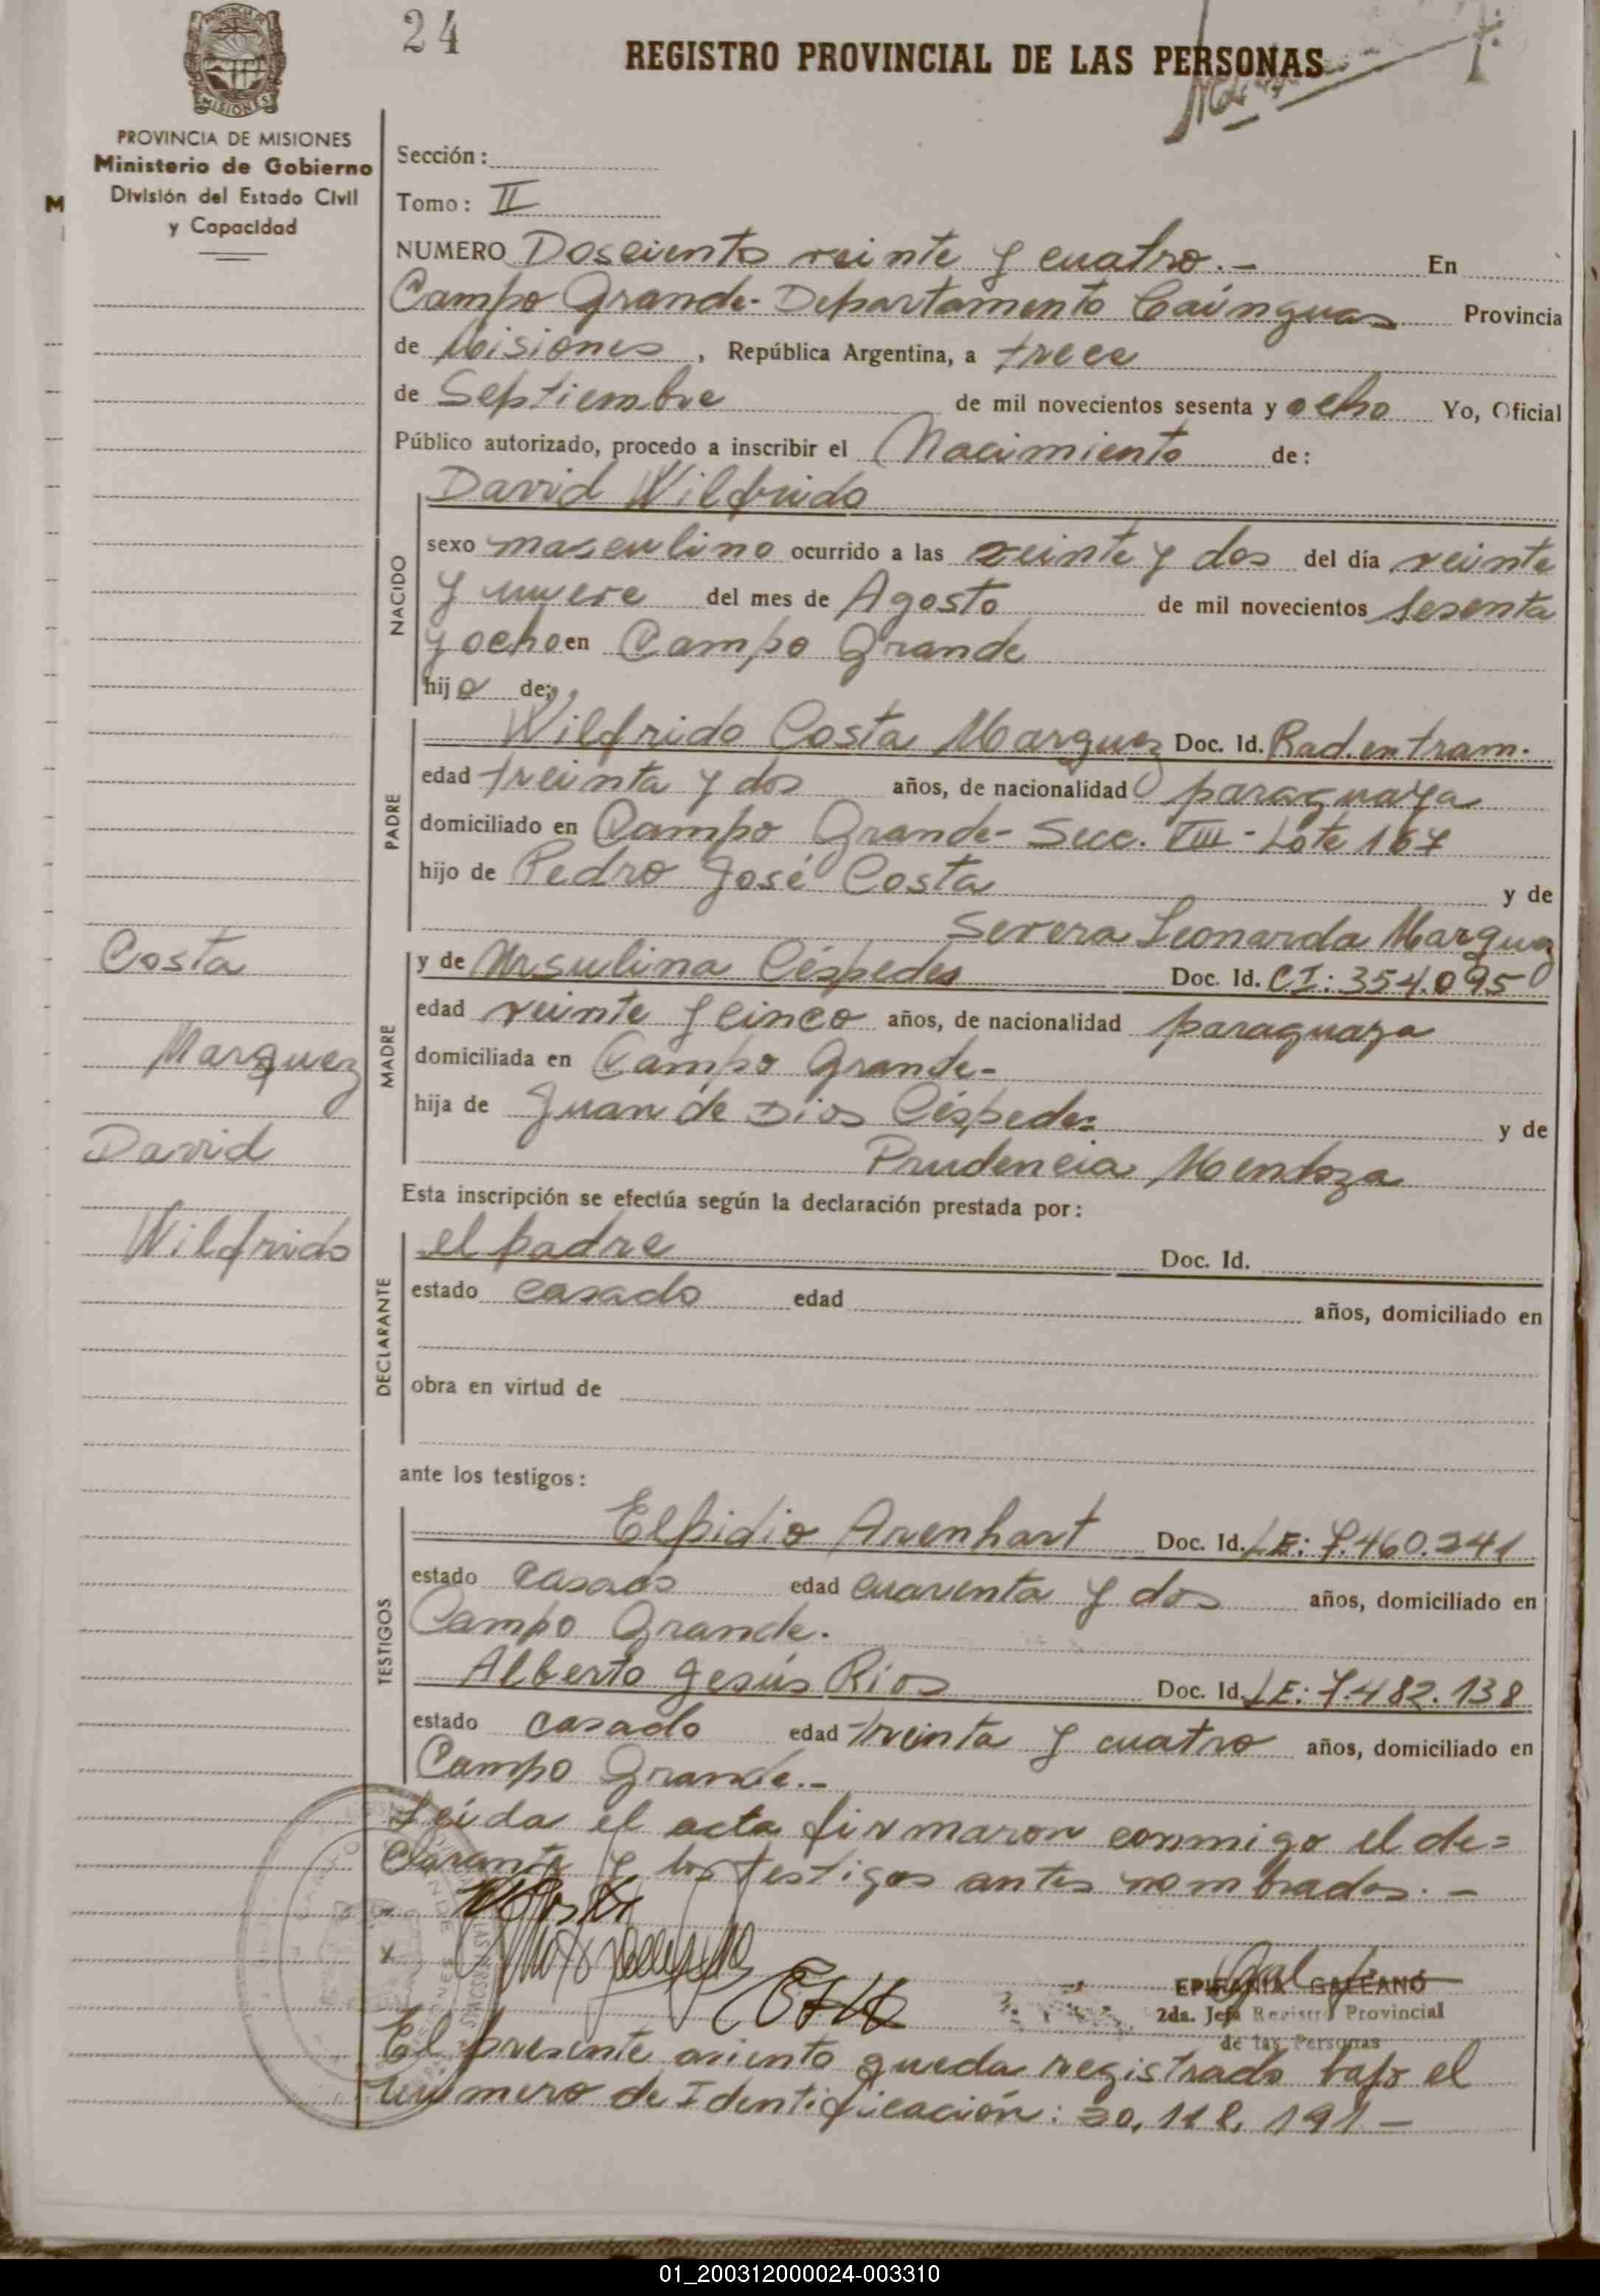 24
REGISTRO PROVINCIAL DE LAS PERSONAS
PROVINCIA DE
MISIONES
PROVINCIA DE MISIONES
Ministerio de Gobierno
División del Estado Civil
y Capacidad
M
Sección:
Tomo: II
NUMERO Dosciento veinte y cuatro.- En
Campo Grande- Departamento Cainguas Provincia
de Misiones, República Argentina, a trece
de Septiembre de mil novecientos sesenta y ocho Yo, Oficial
Público autorizado, procedo a inscribir el Nacimiento de:
David Wilfrido
NACIDO
sexo masculino ocurrido a las veinte y dos del día veinte
y nueve del mes de Agosto de mil novecientos sesenta
y ocho en Campo Grande
hijo de:
PADRE
Wilfrido Costa Marquez Doc. Id. Rad. en tram.
edad treinta y dos años, de nacionalidad paraguaya
domiciliado en Campo Grande- Secc. VIII - Lote 167
hijo de Pedro José Costa y de
Severa Leonarda Marquez
MADRE
y de Ursulina Céspedes Doc. Id. CI: 354.095
edad veinte y cinco años, de nacionalidad paraguaya
domiciliada en Campo Grande-
hija de Juan de Dios Céspedes y de
Prudencia Mendoza
Costa
Marquez
David
Wilfrido
Esta inscripción se efectúa según la declaración prestada por:
DECLARANTE
el padre Doc. Id.
estado casado edad años, domiciliado en
obra en virtud de
ante los testigos:
TESTIGOS
Elpidio Arenhart Doc. Id. LE: 7.460.241
estado casado edad cuarenta y dos años, domiciliado en
Campo Grande.
Alberto Jesús Rios Doc. Id. LE: 7.482.138
estado casado edad treinta y cuatro años, domiciliado en
Campo Grande.-
Leída el acta firmaron conmigo el de=
clarante y los testigos antes nombrados.-
EPIFANIA GALEANO
2da. Jefa Registro Provincial
de las Personas
El presente asiento queda registrado bajo el
número de Identificación: 20.118.191-
01_200312000024-003310